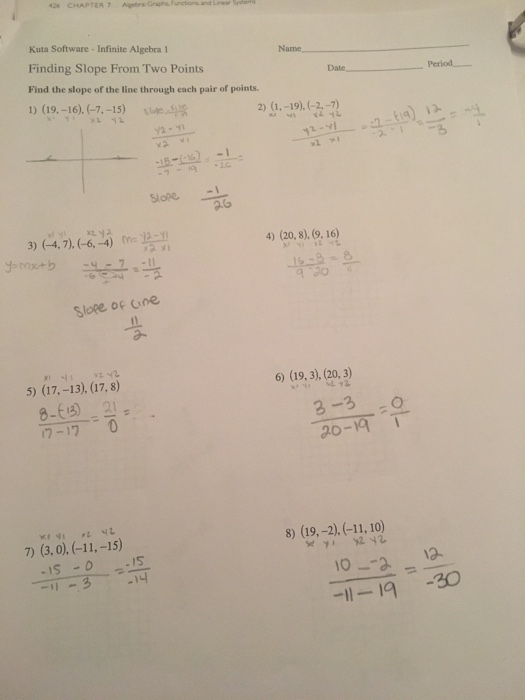 426 CHAPTER 7 Algebra: Graphs, Functions, and Linear Systems
Kuta Software - Infinite Algebra 1
Name
Finding Slope From Two Points
Date Period
Find the slope of the line through each pair of points.
1) (19, −16), (−7, −15)
x1 y1 x2 y2
y2 - y1
x2 x1
-15-(-16) = -1
-7 - 19 -26 =
Slope -1
26
2) (1, −19), (−2, −7)
x1 y1 x2 y2
y2-y1 = -7-(-19) = 12 = -4
x2 x1 -2 - 1 -3 1
3) (−4, 7), (−6, −4) m= y2-y1
x1 y1 x2 y2 x2 x1
y=mx+b
-4 - 7 = -11
-2
Slope of Line
11
2
4) (20, 8), (9, 16)
x1 y1 x2 y2
16-8 = 8
9 20
5) (17, −13), (17, 8)
y1 x2 y2
8-(-13) = 21 =
17-17 0
6) (19, 3), (20, 3)
x1 y1 x2 y2
3-3 = 0
20-19 1
7) (3, 0), (−11, −15)
x1 y1 x2 y2
-15 - 0 = -15
-11 - 3 -14
8) (19, −2), (−11, 10)
x1 y1 x2 y2
10 - -2 = 12
-11 - 19 -30